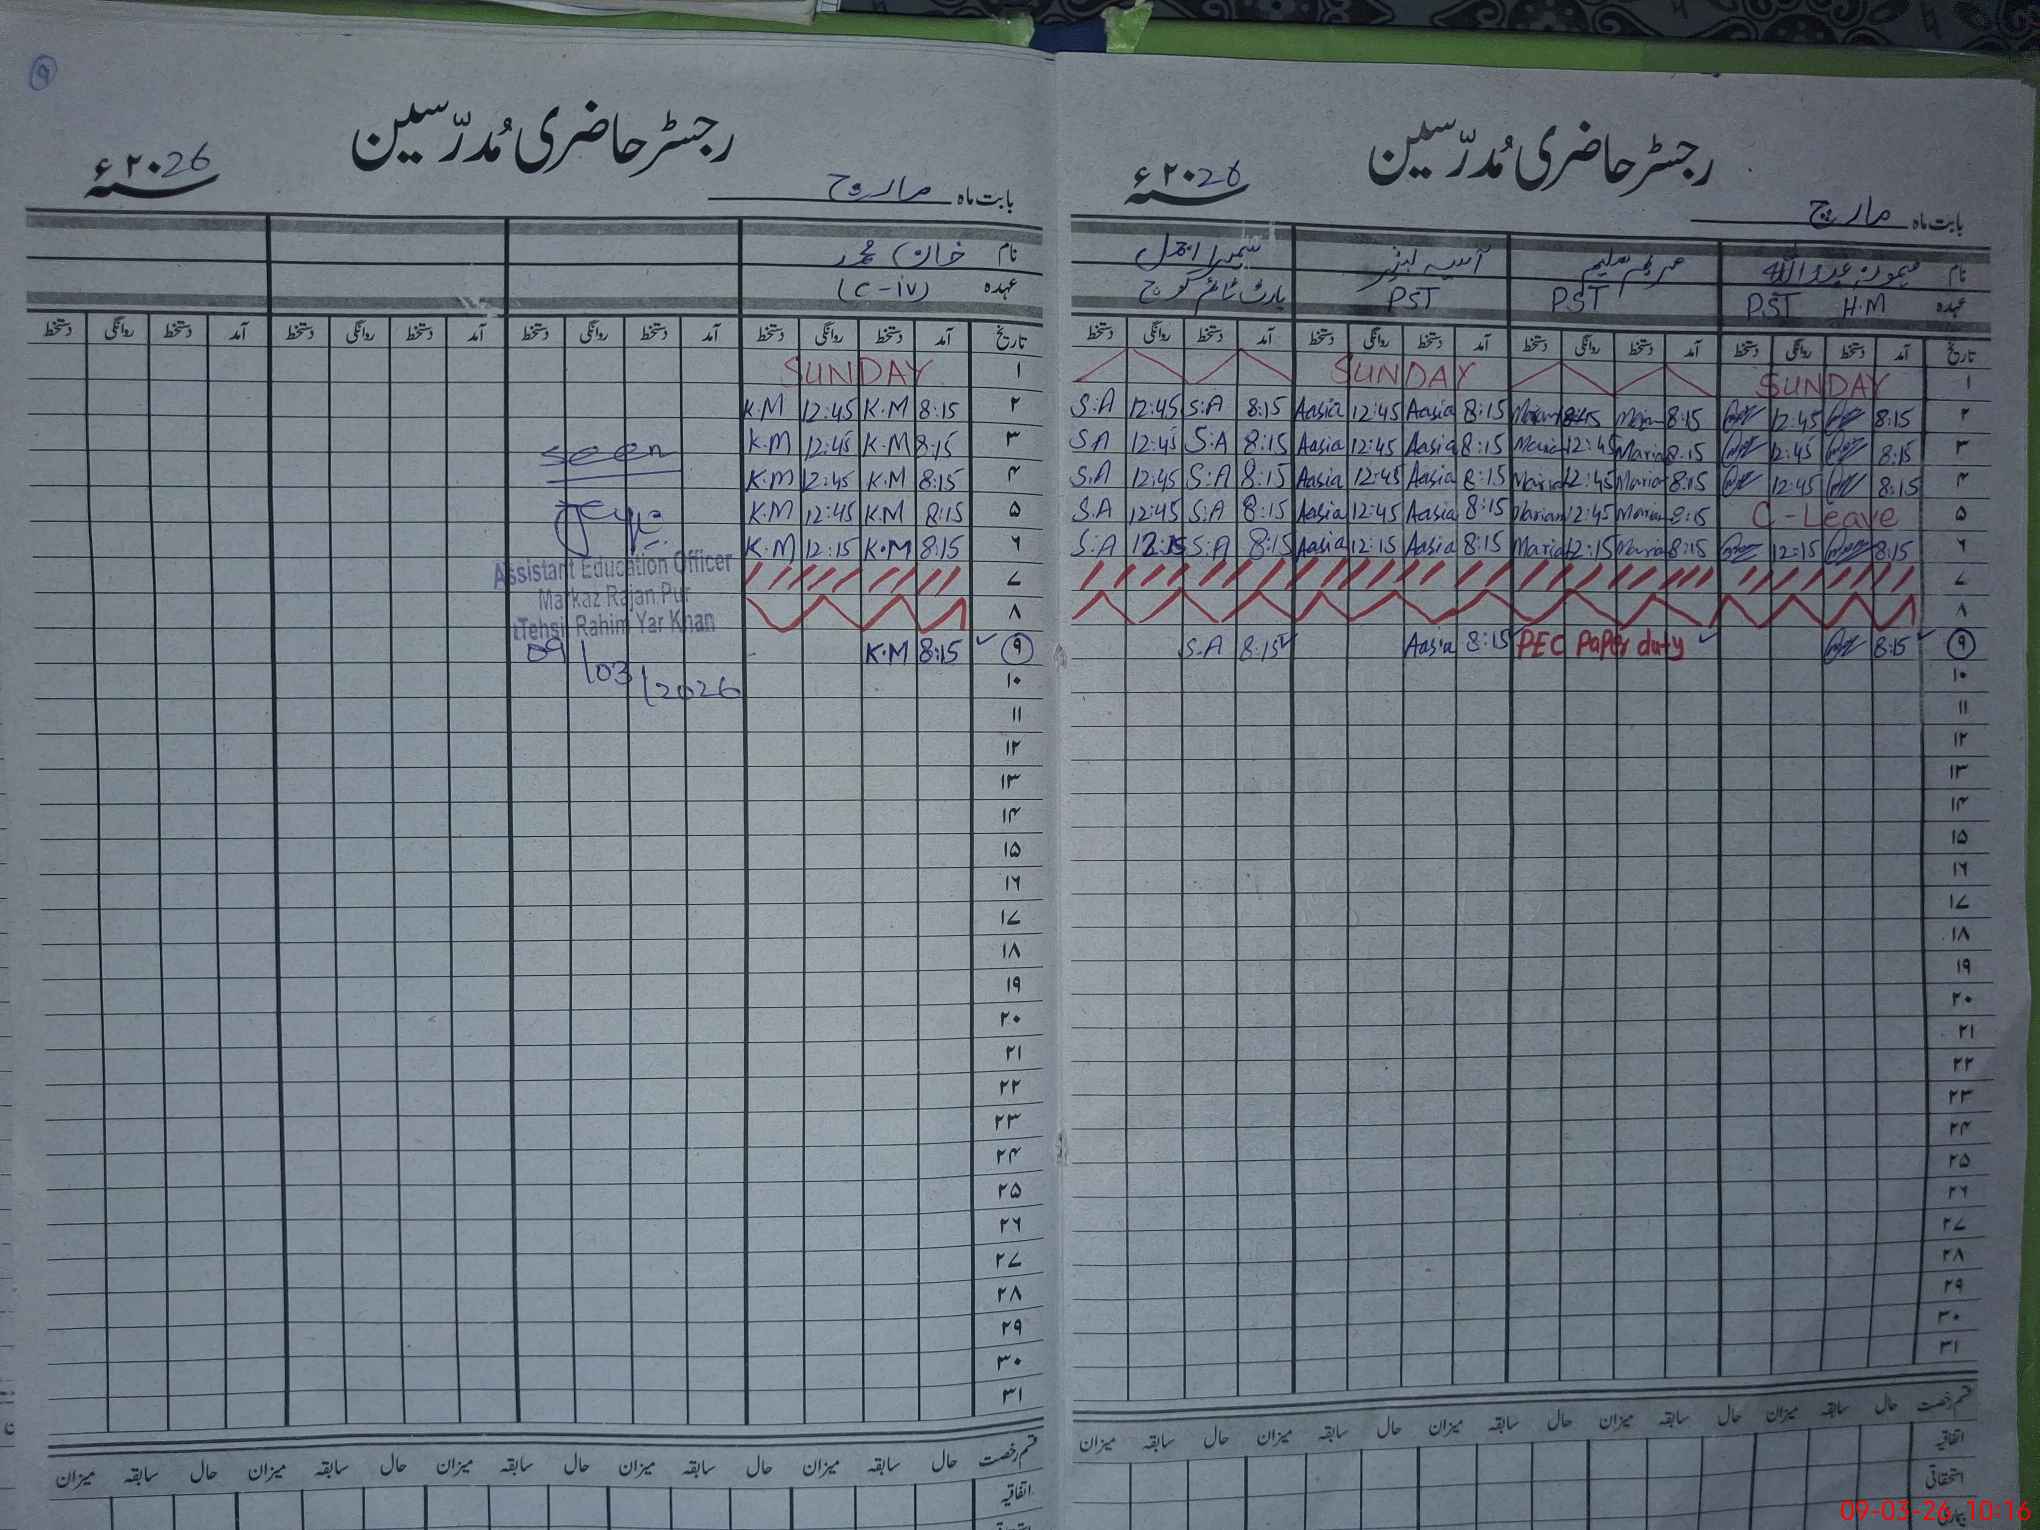 رجسٹر حاضری مُدرّسین
سنہ ۲۰26ء
بابت ماہ مارچ
نام میمونہ عبداللہ مریم سلیم آسیہ
عہدہ PST H.M PST PST پارٹ ٹائم کوچ
تاریخ آمد دستخط روانگی دستخط آمد دستخط روانگی دستخط آمد دستخط روانگی دستخط آمد دستخط روانگی دستخط
۱ SUNDAY SUNDAY
۲ 8:15 12:45 8:15 Aasia 8:15 Aasia 12:45 8:15 S:A 12:45 S:A
۳ 8:15 12:45 8:15 Maria 12:45 Maria 8:15 Aasia 12:45 Aasia 8:15 S:A 12:45 S A
۴ 8:15 12:45 8:15 Maria 12:45 Maria 8:15 Aasia 12:45 Aasia 8:15 S:A 12:45 S.A
۵ C-Leave 8:15 Mariam 12:45 Mariam 8:15 Aasia 12:45 Aasia 8:15 S:A 12:45 S.A
۶ 8:15 12:15 8:15 Maria 12:15 Maria 8:15 Aasia 12:15 Aasia 8:15 S:A 12:15 S:A
۷
۸
۹ 8:15 PEC Paper duty 8:15 Aasia 8:15 S.A
۱۰
۱۱
۱۲
۱۳
۱۴
۱۵
۱۶
۱۷
۱۸
۱۹
۲۰
۲۱
۲۲
۲۳
۲۴
۲۵
۲۶
۲۷
۲۸
۲۹
۳۰
۳۱
قسم رخصت حال سابقہ میزان حال سابقہ میزان حال سابقہ میزان حال سابقہ میزان
اتفاقیہ
استحقاقی
09-03-26 10:16
۹
رجسٹر حاضری مُدرّسین
سنہ ۲۰26ء
بابت ماہ مارچ
نام خان محمد
عہدہ (C-iv)
تاریخ آمد دستخط روانگی دستخط آمد دستخط روانگی دستخط آمد دستخط روانگی دستخط آمد دستخط روانگی دستخط
۱ SUNDAY
۲ 8:15 K.M 12:45 K.M
۳ 8:15 K.M 12:45 K.M
۴ 8:15 K.M 12:45 K.M
۵ 8:15 K.M 12:45 K.M
۶ 8:15 K.M 12:15 K.M
۷
۸
۹ 8:15 K.M
seen
Assistant Education Officer
Markaz Rajan Pur
Tehsil Rahim Yar Khan
09/03/2026
۱۰
۱۱
۱۲
۱۳
۱۴
۱۵
۱۶
۱۷
۱۸
۱۹
۲۰
۲۱
۲۲
۲۳
۲۴
۲۵
۲۶
۲۷
۲۸
۲۹
۳۰
۳۱
قسم رخصت حال سابقہ میزان حال سابقہ میزان حال سابقہ میزان حال سابقہ میزان حال سابقہ میزان
اتفاقیہ